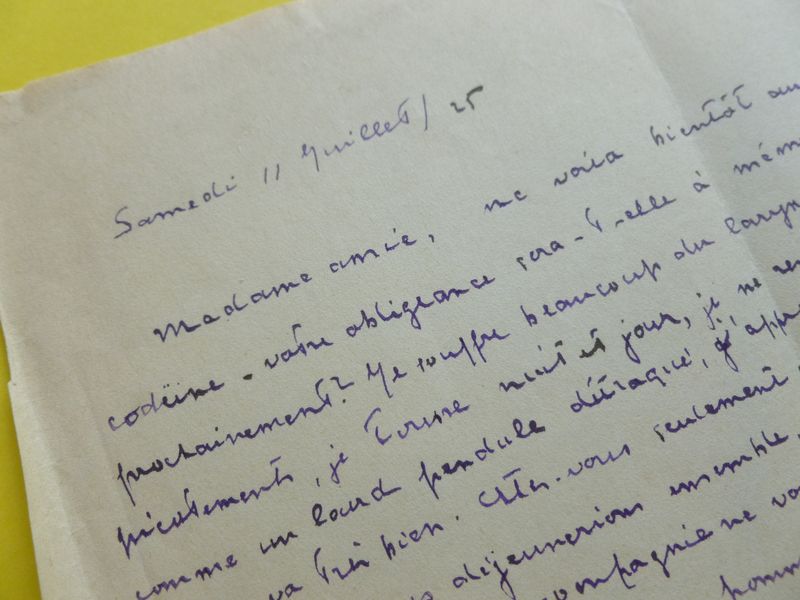 Samedi 11 Juillet / 25
Madame amie, me voila bientôt au
codéine. votre obligeance sera-t-elle à mêm
prochainement? Je souffre beaucoup du laryn
picotements, je tousse nuit et jour, je ne
comme un lourd pendule détraqué, j'appr
va très bien. Etes-vous seulement
déjeunerions ensemble,
compagnie ne vo